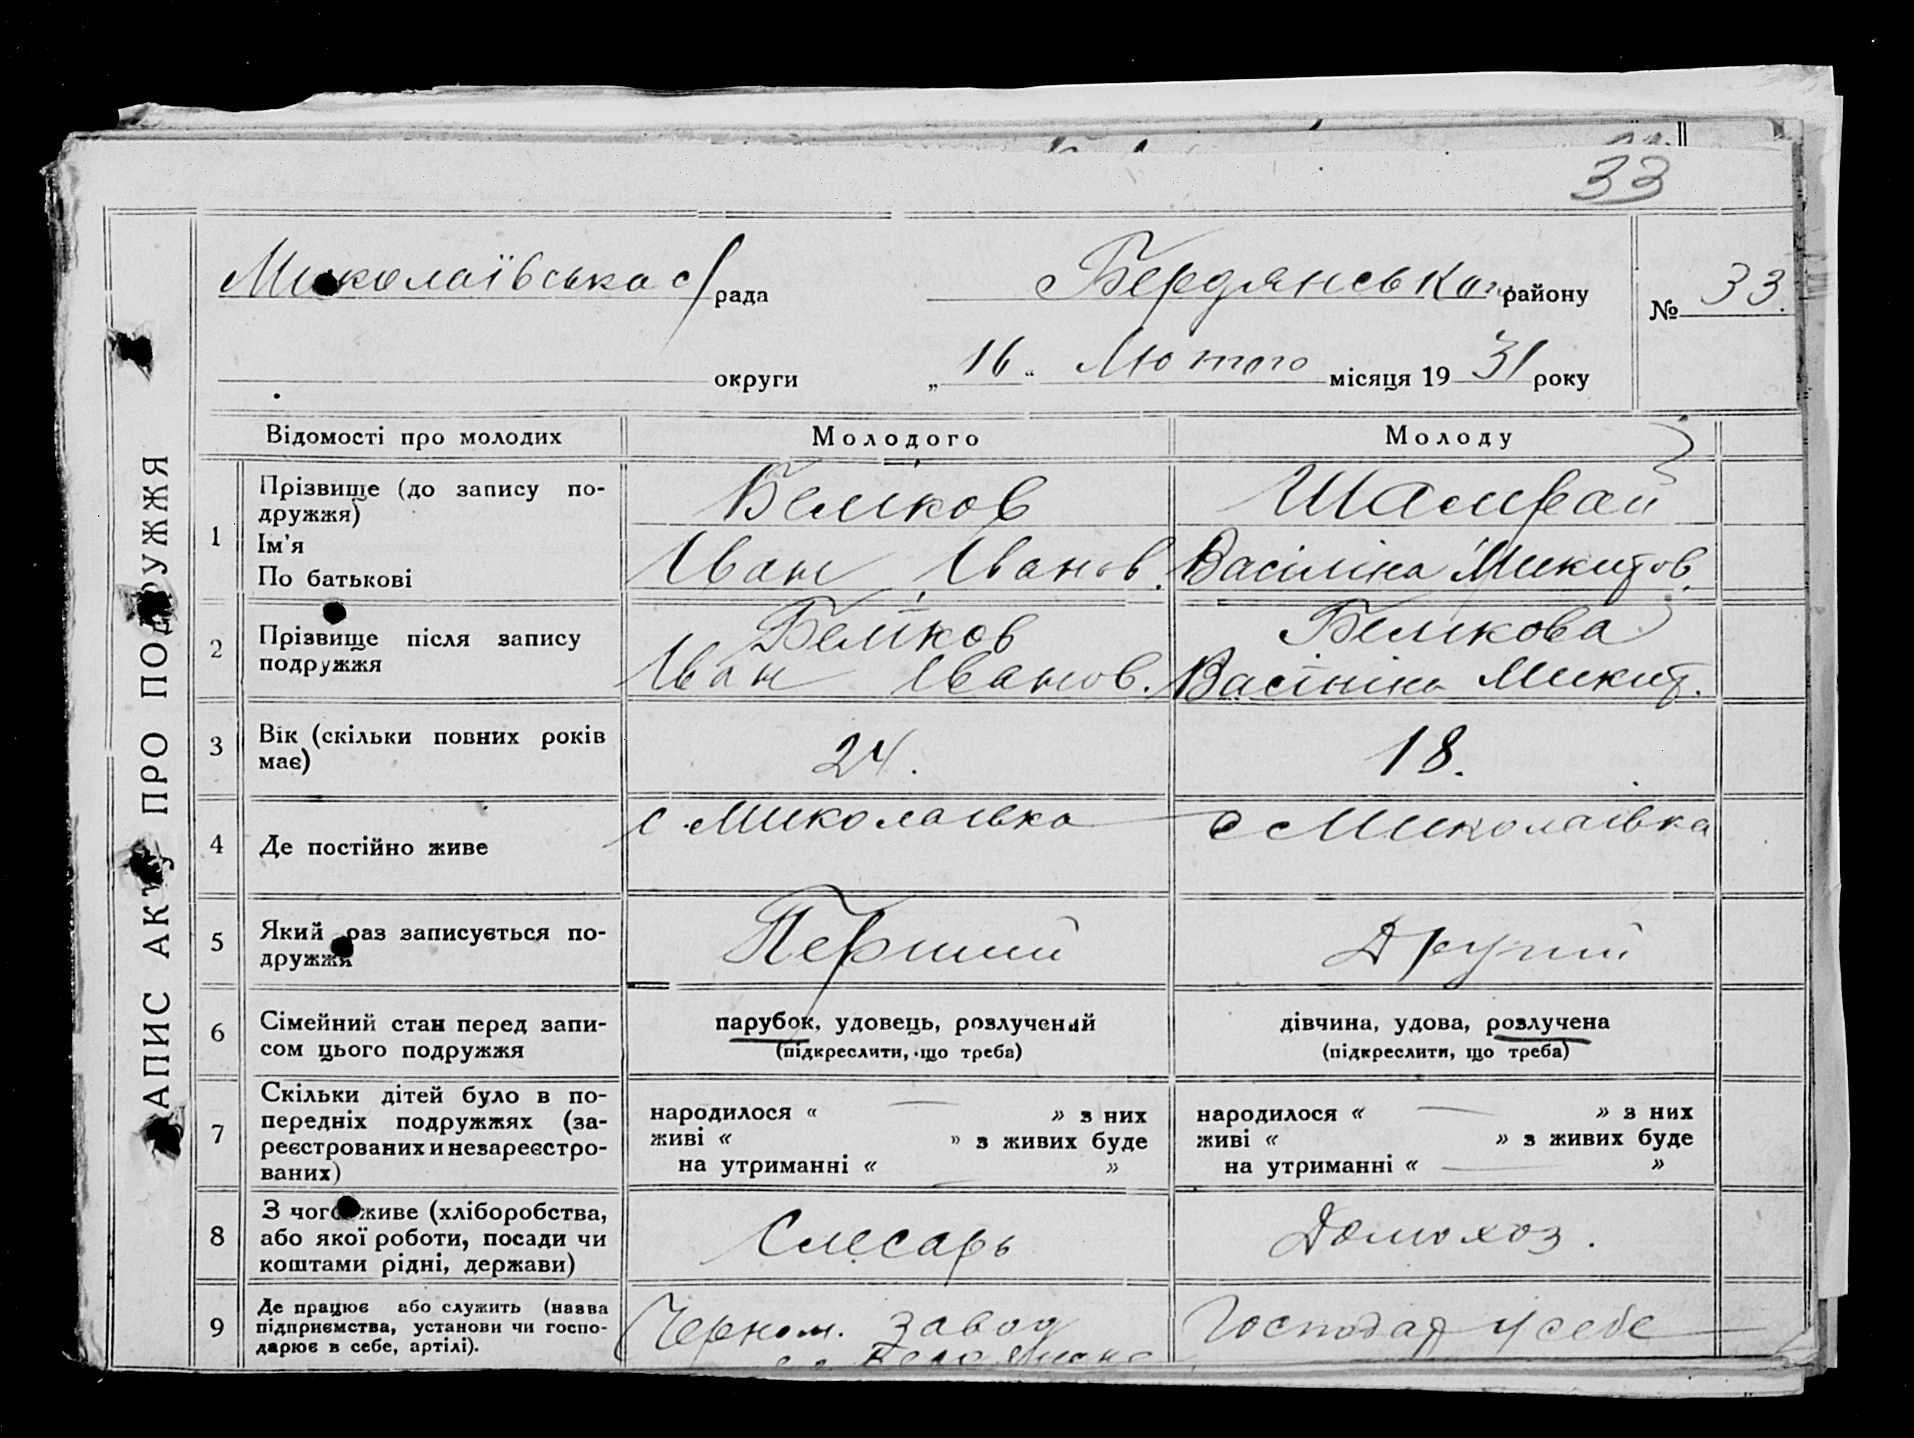 33
Миколаївська с/рада Бердянського району № 33.
округи „16“ Лютого місяця 1931 року
АПИС АКТУ ПРО ПОДРУЖЖЯ
Відомості про молодих Молодого Молоду
1 Прізвище (до запису по-
дружжя)
Ім'я
По батькові
Беліков Шамрай
Іван Іванов. Васіліна Микитов.
2 Прізвище після запису
подружжя
Беліков Белікова
Іван Іванов. Васініна Микит.
3 Вік (скільки повних років
має)
24. 18.
4 Де постійно живе
с. Миколаївка с Миколаївка
5 Який раз записується по-
дружжя
Перший Другий
6 Сімейний стан перед запи-
сом цього подружжя
парубок, удовець, розлучений дівчина, удова, розлучена
(підкреслити, що треба) (підкреслити, що треба)
7 Скільки дітей було в по-
передніх подружжях (за-
реєстрованих и незареєстро-
ваних)
народилося « — » з них народилося « — » з них
живі « » з живих буде живі « » з живих буде
на утриманні « » на утриманні « — »
8 З чого живе (хліборобства,
або якої роботи, посади чи
коштами рідні, держави)
Слесарь Домохоз.
9 Де працює або служить (назва
підприємства, установи чи госпо-
дарює в себе, артілі).
Черном. завод Господар у себе